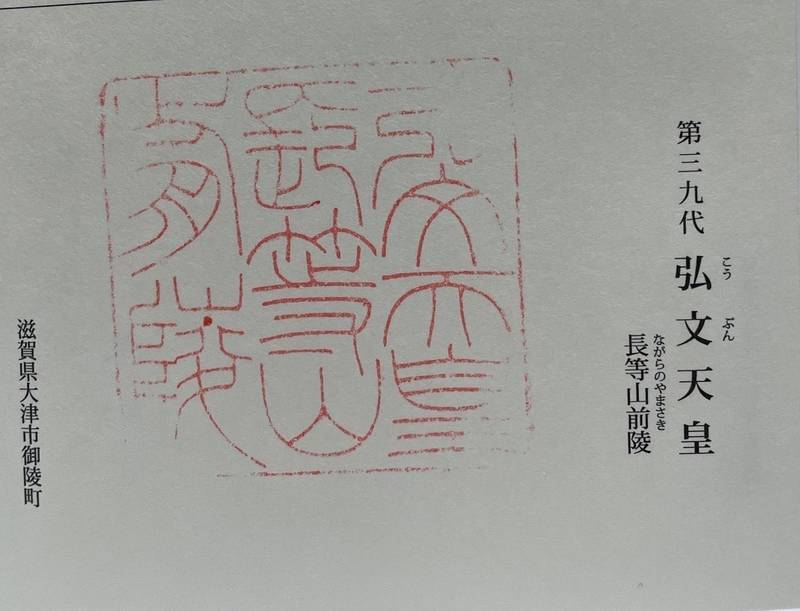 こう ぶん
第三九代 弘文天皇
ながらのやまさき
長等山前陵
弘文天皇
長等山
前陵
滋賀県大津市御陵町